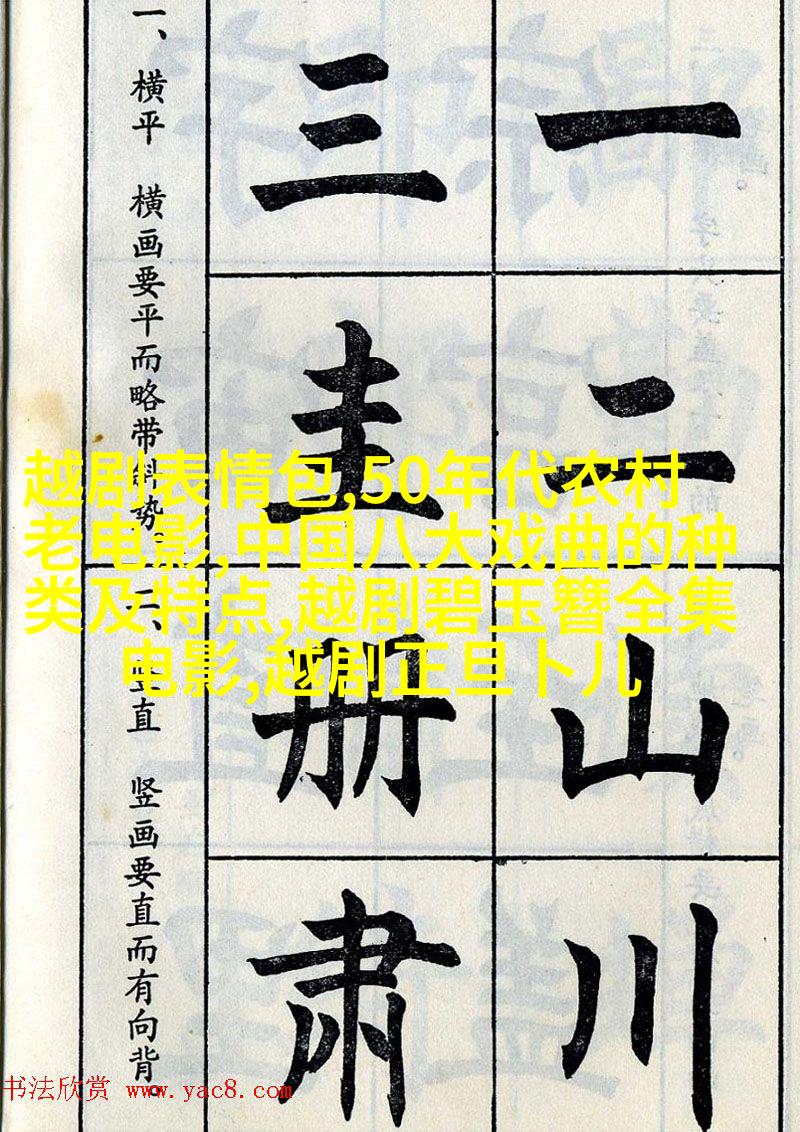 一二山川
三圭册肃
一、横平 横画要平而略带斜势。
二、竖直 竖画要直而有向背。
越剧表情包,50年代农村
老电影,中国八大戏曲的种
类及特点,越剧碧玉簪全集
电影,越剧正旦卜儿
书法欣赏 www.yac8.com